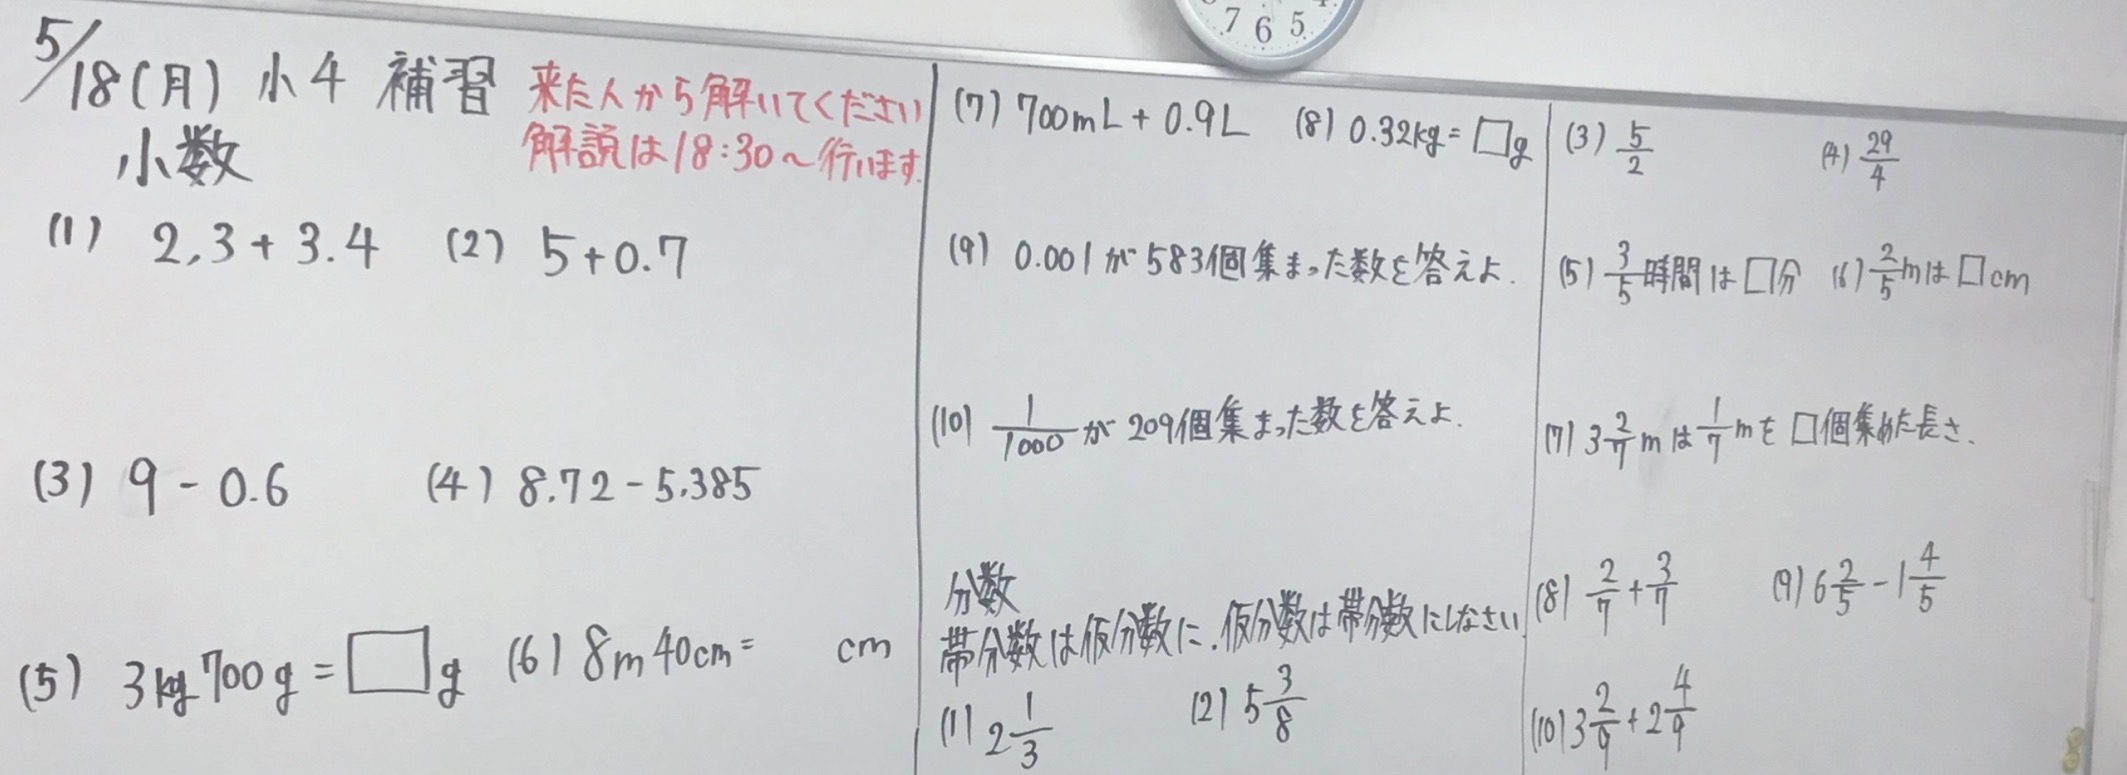 7 6 5
5/18(月) 小4 補習
来た人から解いてください
解説は18:30~行います.
小数
(1) 2.3+3.4 (2) 5+0.7
(3) 9-0.6 (4) 8.72-5.385
(5) 3kg700g=□g (6) 8m40cm= cm
(7) 700mL+0.9L (8) 0.32kg=□g
(9) 0.001が583個集まった数を答えよ.
(10) 1/1000が209個集まった数を答えよ.
分数
帯分数は仮分数に.仮分数は帯分数にしなさい
(1) 2 1/3 (2) 5 3/8
(3) 5/2 (4) 29/4
(5) 3/5時間は□分 (6) 2/5mは□cm
(7) 3 2/7mは1/7mを□個集めた長さ.
(8) 2/7+3/7 (9) 6 2/5-1 4/5
(10) 3 2/9+2 4/9